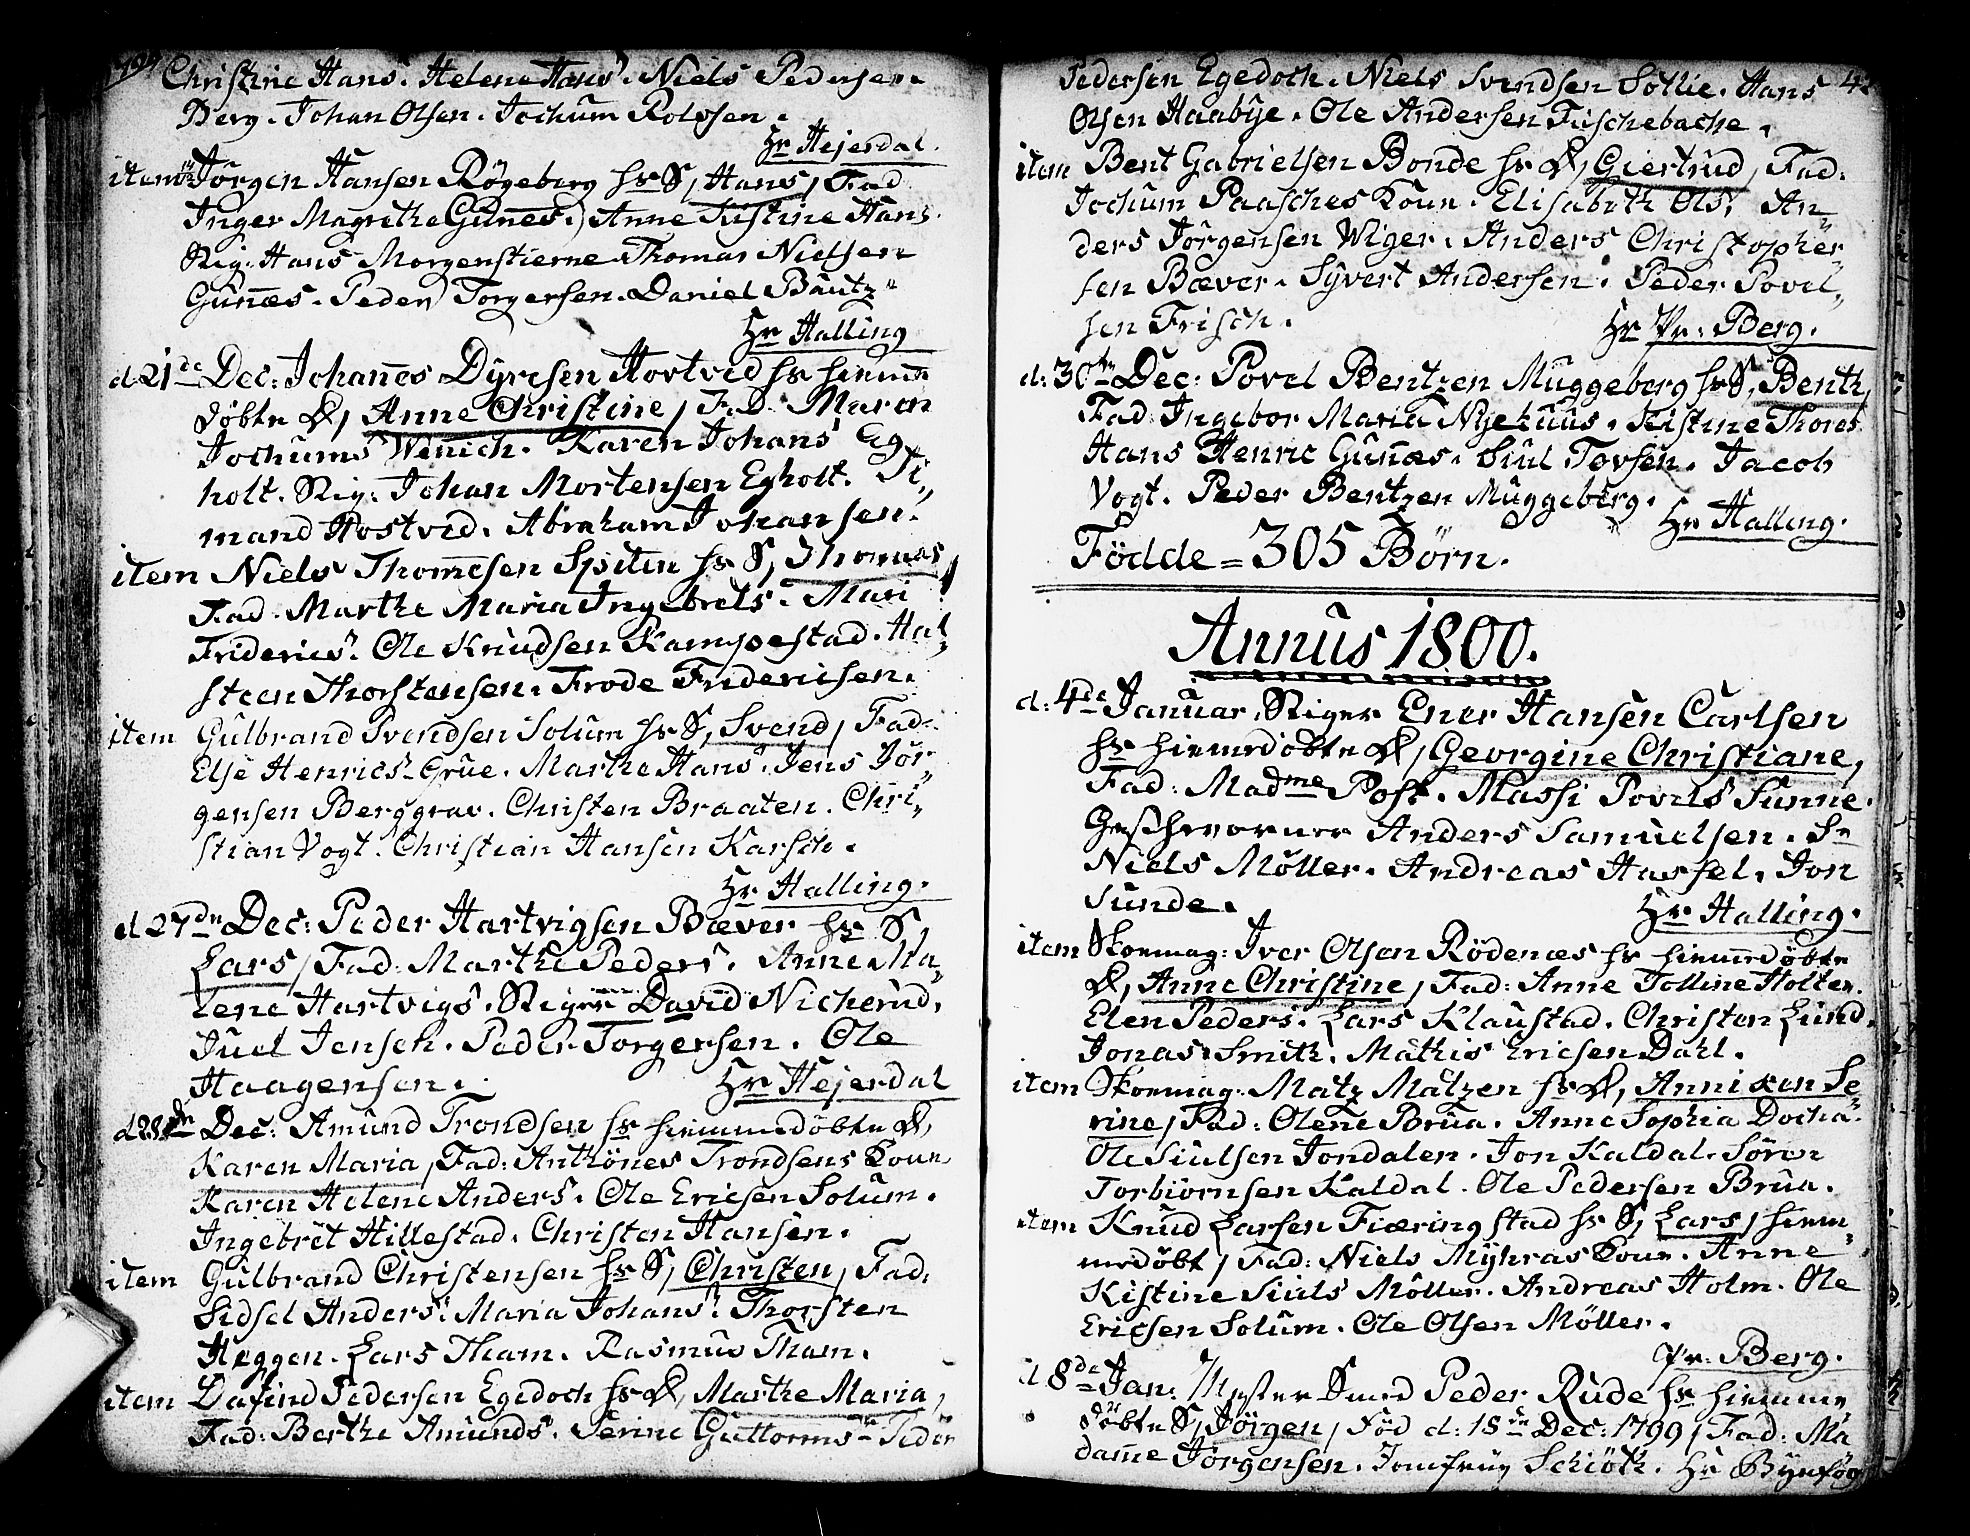 Christine Hans. Helene Hans. Niels Pedersen
Berg. Johan Olsen. Jochum Rolvsen.
Hr Hejerdal.
item Jörgen Hansen Rögeberg hs S, Hans, Fad
Inger Magrethe Gunnes. Anne Kistine Hans.
Rig: Hans Morgenstierne Thomas Nielsen
Gunnæs. Peder Torgersen. Daniel Bautz
Hr Halling
d 21de Dec: Johannes Dyresen Hortved hs hiemme
döbte D, Anne Christine, Fad. Maren
Jochums Wenich. Karen Johans Eg,,
holt. Rig: Johan Mortensen Egholt. Ti,,
mand Hostved. Abraham Johansen.
item Niels Thomesen Spiten hs S, Thomas,
Fad. Marthe Maria Ingebrets. Mari
Friderics. Ole Knudsen Kampestad. Hal,,
steen Thorstensen. Frode Fridericsen.
item Gulbrand Svendsen Solum hs S, Svend, Fad.
Else Henrics Grue. Marthe Hans. Jens Jör,,
gensen Berggrav. Christen Braaten. Chri,,
stian Vogt. Christian Hansen Karsch.
Hr Halling.
d 27de Dec: Peder Hartvigsen Bæver hs S,
Lars, Fad: Marthe Peders. Anne Ma,,
lene Hartvigs. Rig: David Nicherud,
Juel Jensen. Peder Torgersen. Ole
Haagensen. Hr Hejerdal
d28de Dec: Amund Trondsen hs hiemmedöbte D,
Karen Maria, Fad: Anthönes Trondsens Koune
Karen Helene Anders. Ole Ericsen Solum.
Ingebret Hillestad. Christen Hansen.
item Gulbrand Christensen hs S, Christen, Fad:
Sidsel Anders. Maria Johans. Thorsten
Heggen. Lars Tham. Rasmus Tham.
item Dafind Pedersen Egedoch hs D, Marthe Maria,
Fad: Berthe Amunds. Serine Guttorms Peder
Pedersen Egedoch. Niels Svendsen Sollie. Hans
Olsen Haabye. Ole Andersen Fuschebache.
item Bent Gabrielsen Bonde hs D, Giertrud, Fad:
Jochum Paasches Koun. Elisabeth Ols. An,,
ders Jörgensen Wiger. Anders Christopher,,
sen Bæver. Syvert Andersen. Peder Povel,,
sen Frisch. Hr Pr: Berg.
d: 30te Dec: Povel Bentzen Muggeberg hs S, Benth,
Fad: Ingebor Maria Nyehuus. Kistine Thores
Hans Henric Gunnæs. Siul Torsen. Jacob
Vogt. Peder Bentzen Muggeberg.
Hr Halling.
Födde = 305 Börn.
Annus 1800.
d: 4de Januar. Riger Ener Hansen Carlsen
hs hiemedöbte D, Georgine Christiane,
Fad: Madme Post. Massi Povels Sunne.
Geschworner Anders Samuelsen. Sr
Niels Möller. Andreas Hassel. Jon
Sunde. Hr Halling.
item Skoemag: Iver Olsen Rödenæs hs hiemmedöbte
D, Anne Christine, Fad: Anne Tolline Holter.
Elen Peders. Lars Klaustad. Christen Lund.
Jonas Smith. Mathis Ericsen Dahl.
item Skoemag: Matz Matzen hs D, Annixen Se
rine, Fad: Olene Brua. Anne Sophia Docha.
Ole Siulsen Jondalen. Jon Kaldal. Sören
Torbiörnsen Kaldal. Ole Pedersen Brua.
item Knud Larsen Fiæringstad hs S, Lars, hiem,,
medöbt, Fad: Niels Myhras Koun. Anne
Kistine Siuls Möller. Andreas Holm. Ole
Ericsen Solum. Ole Olsen Möller.
Pr: Berg.
d 8de Jan: Mester Smed Peder Rude hs hiemme,,
döbte S, Jörgen, Föd d: 18de Dec: 1799, Fad: Ma
dame Jörgensen. Jomfruy Schiöth. Hr Bynfög